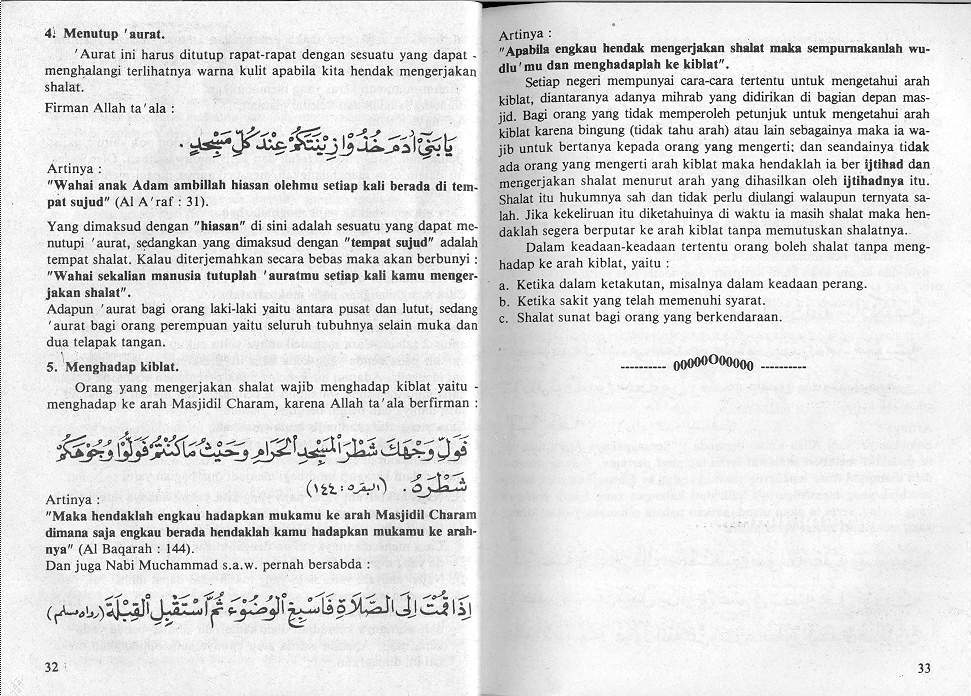 4. Menutup 'aurat.
'Aurat ini harus ditutup rapat-rapat dengan sesuatu yang dapat -
menghalangi terlihatnya warna kulit apabila kita hendak mengerjakan
shalat.
Firman Allah ta'ala :
يَابَنِيْٓ اٰدَمَ خُذُوْا زِيْنَتَكُمْ عِنْدَ كُلِّ مَسْجِدٍ .
Artinya :
"Wahai anak Adam ambillah hiasan olehmu setiap kali berada di tem-
pat sujud" (Al A'raf : 31).
Yang dimaksud dengan "hiasan" di sini adalah sesuatu yang dapat me-
nutupi 'aurat, sedangkan yang dimaksud dengan "tempat sujud" adalah
tempat shalat. Kalau diterjemahkan secara bebas maka akan berbunyi :
"Wahai sekalian manusia tutuplah 'auratmu setiap kali kamu menger-
jakan shalat".
Adapun 'aurat bagi orang laki-laki yaitu antara pusat dan lutut, sedang
'aurat bagi orang perempuan yaitu seluruh tubuhnya selain muka dan
dua telapak tangan.
5. Menghadap kiblat.
Orang yang mengerjakan shalat wajib menghadap kiblat yaitu -
menghadap ke arah Masjidil Charam, karena Allah ta'ala berfirman :
فَوَلِّ وَجْهَكَ شَطْرَ الْمَسْجِدِ الْحَرَامِ وَحَيْثُ مَا كُنْتُمْ فَوَلُّوْا وُجُوْهَكُمْ
شَطْرَهُ . (البقرة : ١٤٤)
Artinya :
"Maka hendaklah engkau hadapkan mukamu ke arah Masjidil Charam
dimana saja engkau berada hendaklah kamu hadapkan mukamu ke arah-
nya" (Al Baqarah : 144).
Dan juga Nabi Muchammad s.a.w. pernah bersabda :
اِذَا قُمْتَ اِلَى الصَّلَاةِ فَاَسْبِغِ الْوُضُوْءَ ثُمَّ اسْتَقْبِلِ الْقِبْلَةَ (رواه مسلم)
32
Artinya :
"Apabila engkau hendak mengerjakan shalat maka sempurnakanlah wu-
dlu'mu dan menghadaplah ke kiblat".
Setiap negeri mempunyai cara-cara tertentu untuk mengetahui arah
kiblat, diantaranya adanya mihrab yang didirikan di bagian depan mas-
jid. Bagi orang yang tidak memperoleh petunjuk untuk mengetahui arah
kiblat karena bingung (tidak tahu arah) atau lain sebagainya maka ia wa-
jib untuk bertanya kepada orang yang mengerti; dan seandainya tidak
ada orang yang mengerti arah kiblat maka hendaklah ia ber ijtihad dan
mengerjakan shalat menurut arah yang dihasilkan oleh ijtihadnya itu.
Shalat itu hukumnya sah dan tidak perlu diulangi walaupun ternyata sa-
lah. Jika kekeliruan itu diketahuinya di waktu ia masih shalat maka hen-
daklah segera berputar ke arah kiblat tanpa memutuskan shalatnya.
Dalam keadaan-keadaan tertentu orang boleh shalat tanpa meng-
hadap ke arah kiblat, yaitu :
a. Ketika dalam ketakutan, misalnya dalam keadaan perang.
b. Ketika sakit yang telah memenuhi syarat.
c. Shalat sunat bagi orang yang berkendaraan.
---------- 00000O00000 ----------
33